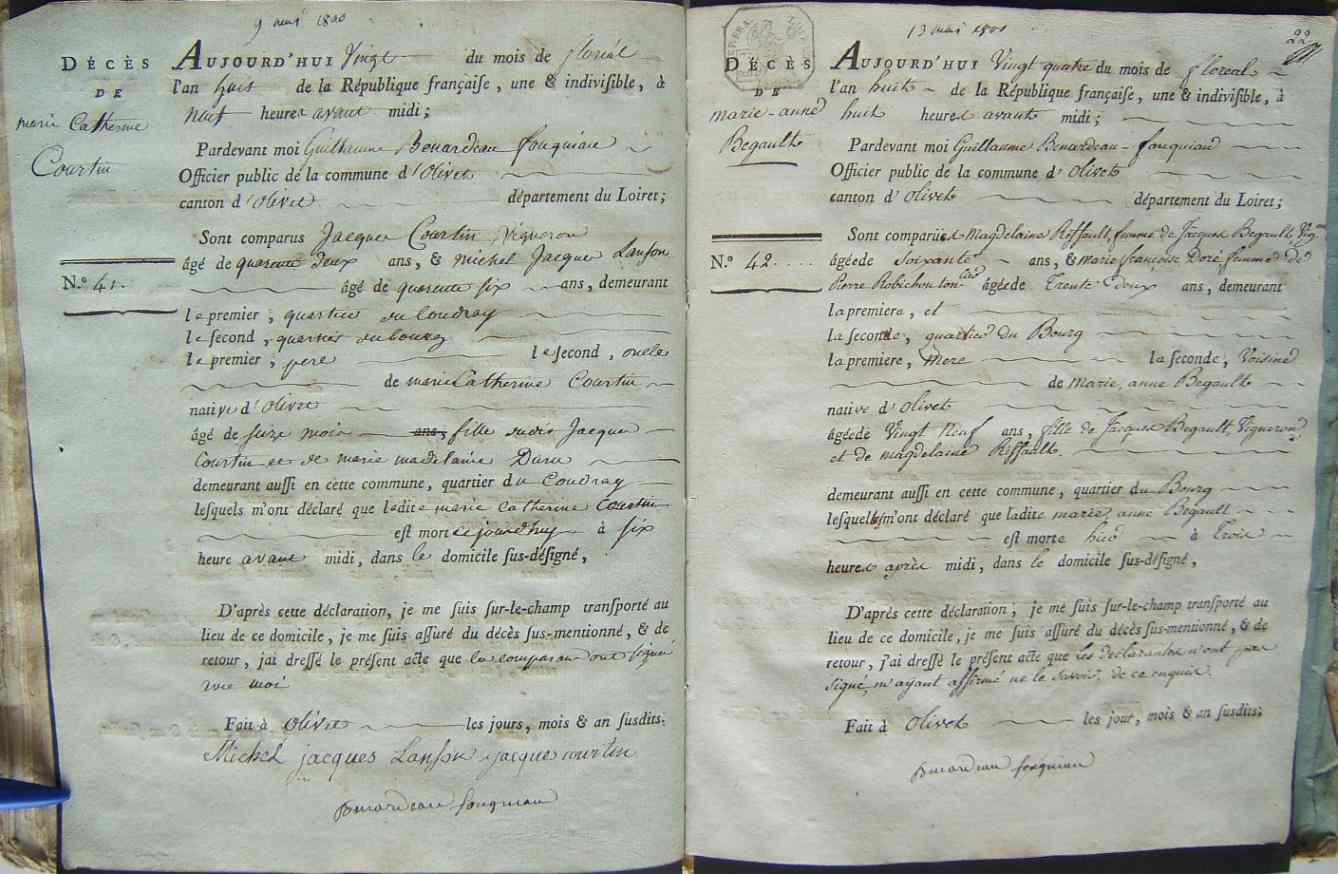 9 mai 1800
DÉCÈS
DE
marie Catherine
Courtin
N.° 41.
AUJOURD'HUI Vingt du mois de floréal
l'an huit de la République françaiſe, une & indiviſible, à
huit heures avant midi;
Pardevant moi Guillaume Benardeau fouquiau
Officier public de la commune d'Olivet
canton d'Olivet département du Loiret;
Sont comparus Jacques Courtin Vigneron
âgé de quarente deux ans, & Michel Jacques Lanson
âgé de quarente six ans, demeurant
le premier, quartier du Coudray
le ſecond, quartier du bourg
le premier, pere le ſecond, oncle
de marie Catherine Courtin
native d'Olivet
âgé de seize mois ans, fille dudit Jacques
Courtin et de marie madelaine Daru
demeurant auſſi en cette commune, quartier du Coudray
leſquels m'ont déclaré que ladite marie Catherine Courtin
eſt morte cejourdhuy à six
heure avant midi, dans le domicile ſus-déſigné,
D'après cette déclaration, je me ſuis ſur-le-champ tranſporté au
lieu de ce domicile, je me ſuis aſſuré du décès ſus-mentionné, & de
retour, j'ai dreſſé le préſent acte que les comparans ont signé
avec moi
Fait à Olivet les jours, mois & an ſusdits.
Michel jacques Lanson jacque courtin
benardeau fouquiau
13 mai 1800
22
DÉCÈS
DE
marie-anne
Begault
N.° 42.
AUJOURD'HUI Vingt quatre du mois de floréal
l'an huit de la République françaiſe, une & indiviſible, à
huit heures avant midi;
Pardevant moi Guillaume Benardeau-fouquiau
Officier public de la commune d'Olivet
canton d'Olivet département du Loiret;
Sont comparues Magdelaine Riffault, femme de Jacques Begault Vig.on
âgée de Soixante ans, & marie françoise Doré femme de
Pierre Robichon âgée de Trente deux ans, demeurant
la premiere, et
la ſeconde, quartier du Bourg
la premiere, Mere la ſeconde, Voisine
de Marie, anne Begault
native d'Olivet
âgée de Vingt Neuf ans, fille de Jacques Begault, Vigneron,
et de magdelaine Riffault.
demeurant auſſi en cette commune, quartier du Bourg
leſquelles m'ont déclaré que ladite marie, anne Begault
eſt morte hier à Trois
heures après midi, dans le domicile ſus-déſigné,
D'après cette déclaration; je me ſuis ſur-le-champ tranſporté au
lieu de ce domicile, je me ſuis aſſuré du décès ſus-mentionné, & de
retour, j'ai dreſſé le préſent acte que les Déclarantes n'ont pas
signé, m'ayant affirmé ne le Savoir, de ce enquis.
Fait à Olivet les jour, mois & an ſusdits;
benardeau fouquiau